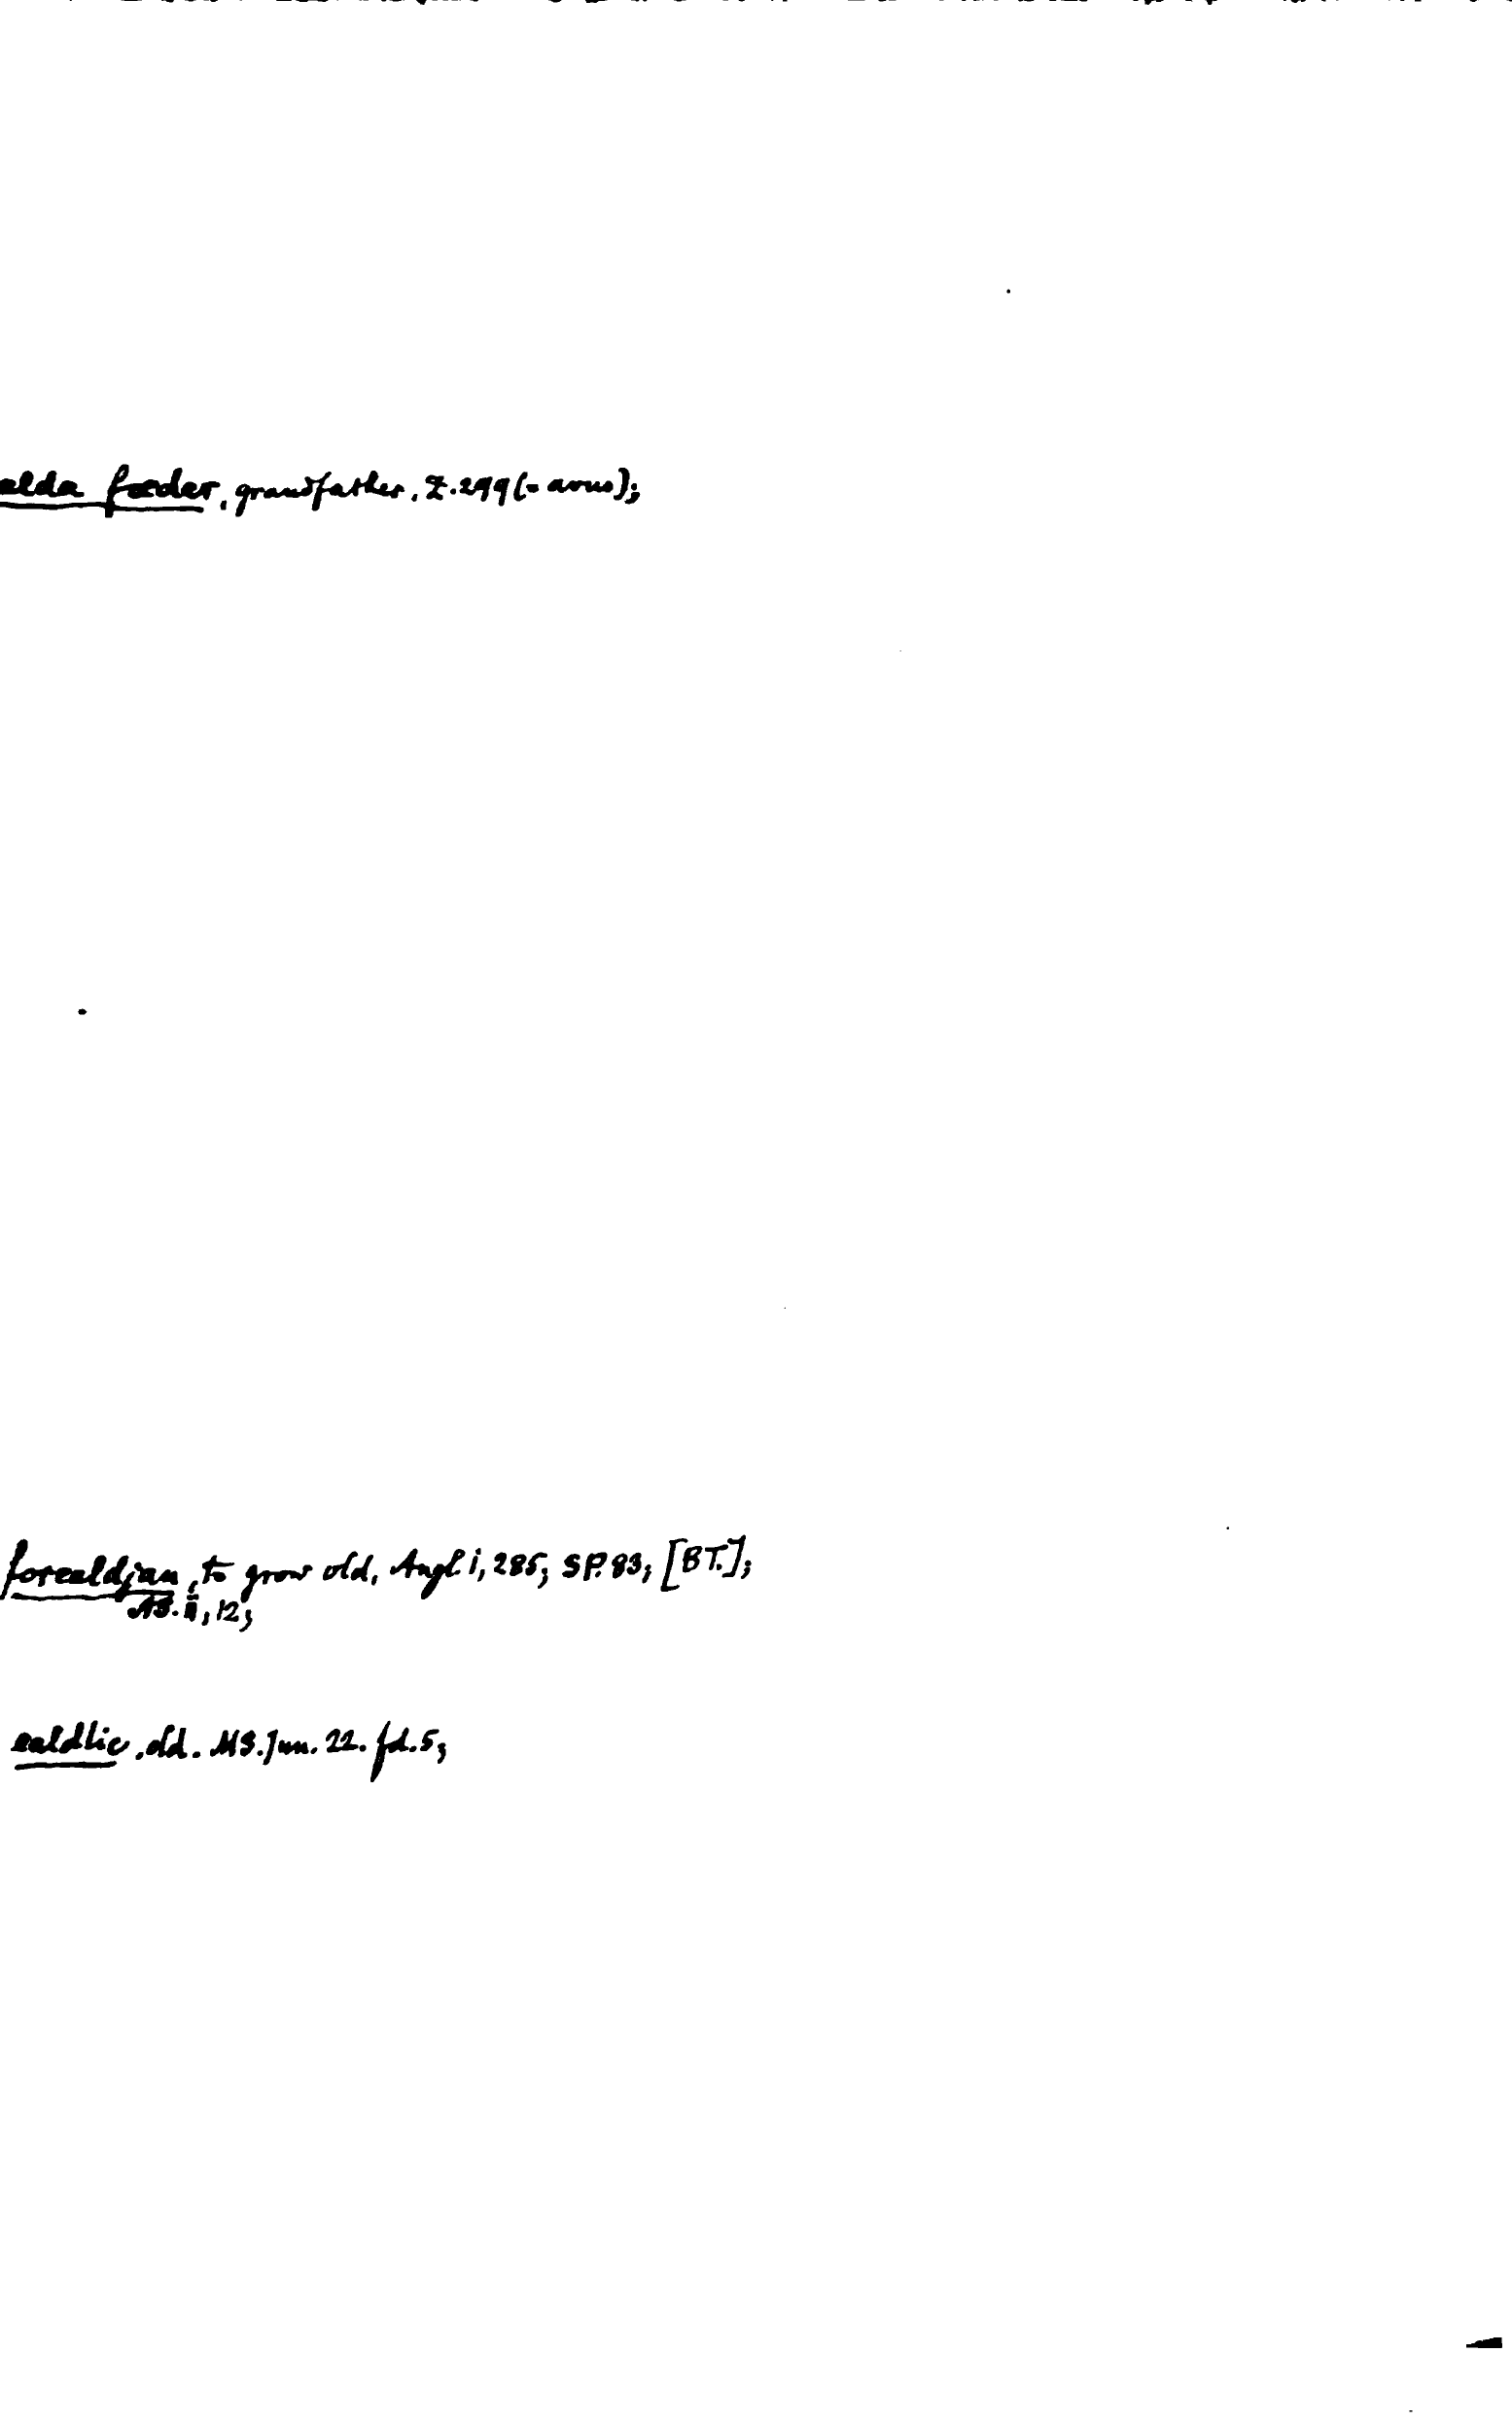 ealda fæder, grandfather, Z.299 (= avus);
forealdjan, to grow old, Angl. i, 285; SP. 83; [BT.];
AS. ii, 12;
ealdlic, old. MS. Jun. 22. fol. 5;